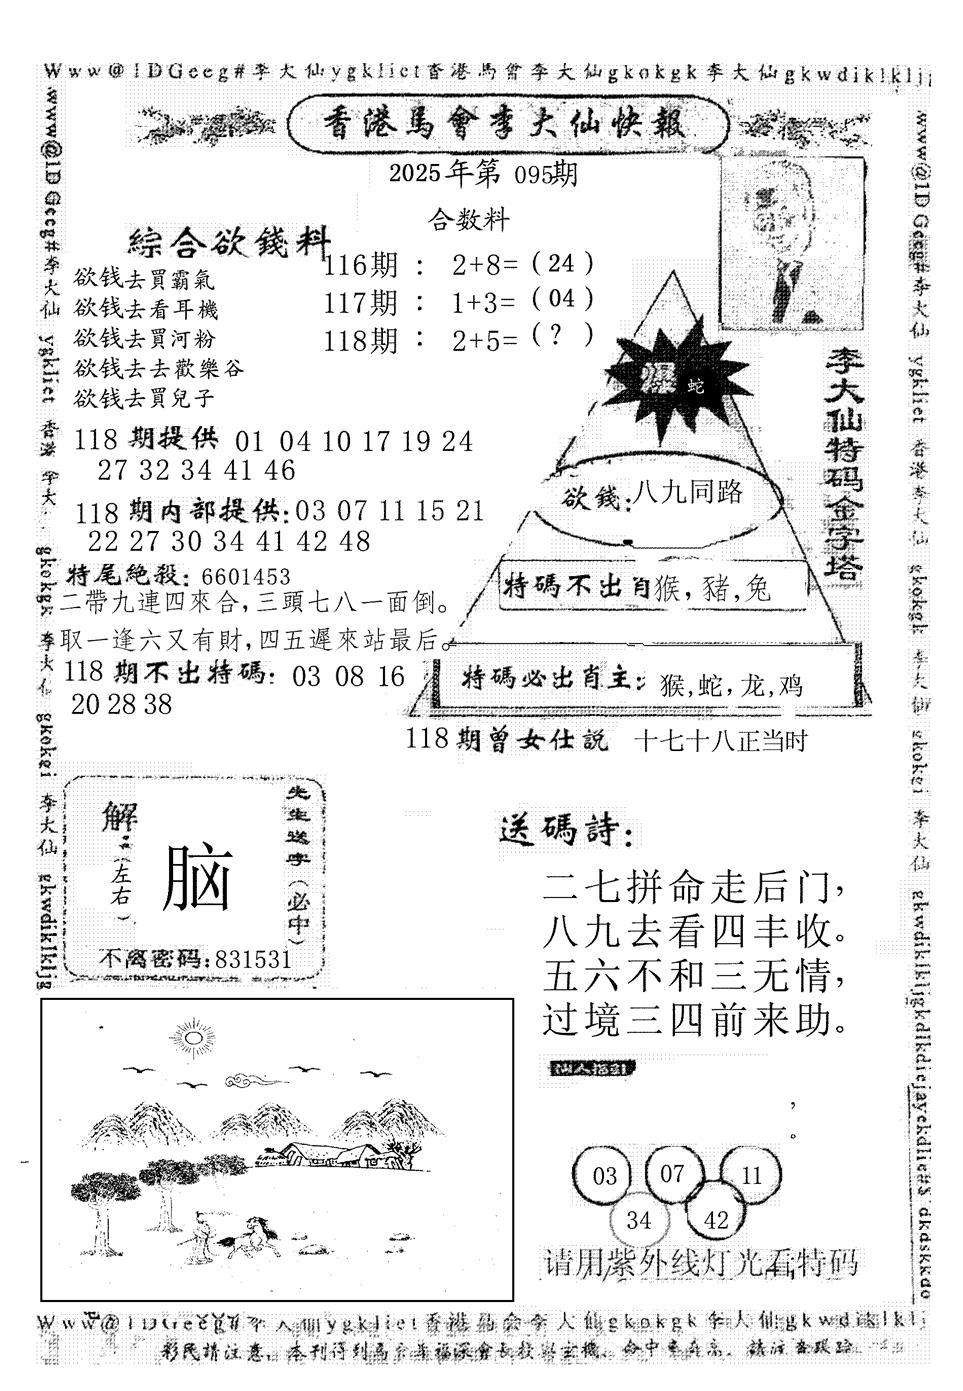 Www@1DGeeg#李大仙ygkliet香港馬會李大仙gkokgk李大仙gkwdiklkljg
香港馬會李大仙快報
2025年第 095期
合数料
綜合欲錢料
116期 ： 2+8=（24）
117期 ： 1+3=（04）
118期 ： 2+5=（？）
欲钱去買霸氣
欲钱去看耳機
欲钱去買河粉
欲钱去去歡樂谷
欲钱去買兒子
118 期提供 01 04 10 17 19 24
27 32 34 41 46
118 期内部提供:03 07 11 15 21
22 27 30 34 41 42 48
特尾絶殺: 6601453
二帶九連四來合,三頭七八一面倒。
取一逢六又有財,四五遲來站最后。
118 期不出特碼: 03 08 16
20 28 38
李大仙特码金字塔
爆 蛇
欲錢:八九同路
特碼不出肖猴,豬,兔
特碼必出肖主: 猴,蛇,龙,鸡
118期曾女仕説 十七十八正当时
解:(左右)
脑
先生送字(必中)
不离密码:831531
送碼詩:
二七拼命走后门,
八九去看四丰收。
五六不和三无情,
过境三四前来助。
仙人指引
,
。
03 07 11
34 42
请用紫外线灯光看特码
www@1DGeeg#李大仙 ygkliet 香港 李大 gkokgk 李大仙 gkokgi 李大仙 gkwdiklkljg
www@1DGeeg#李大仙 ygkliet 香港李大仙 gkokgk 李大仙 gkokgi 李大仙
Www@1DGeeg#李大仙ygkliet香港馬会李大仙gkokgk李大仙gkwdiklklj
彩民請注意,本刊得到馬